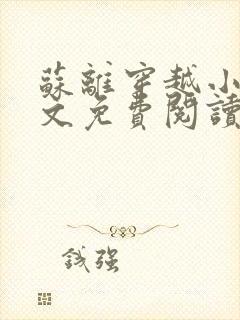 蘇離穿越小
文免費閱讀
鋮强